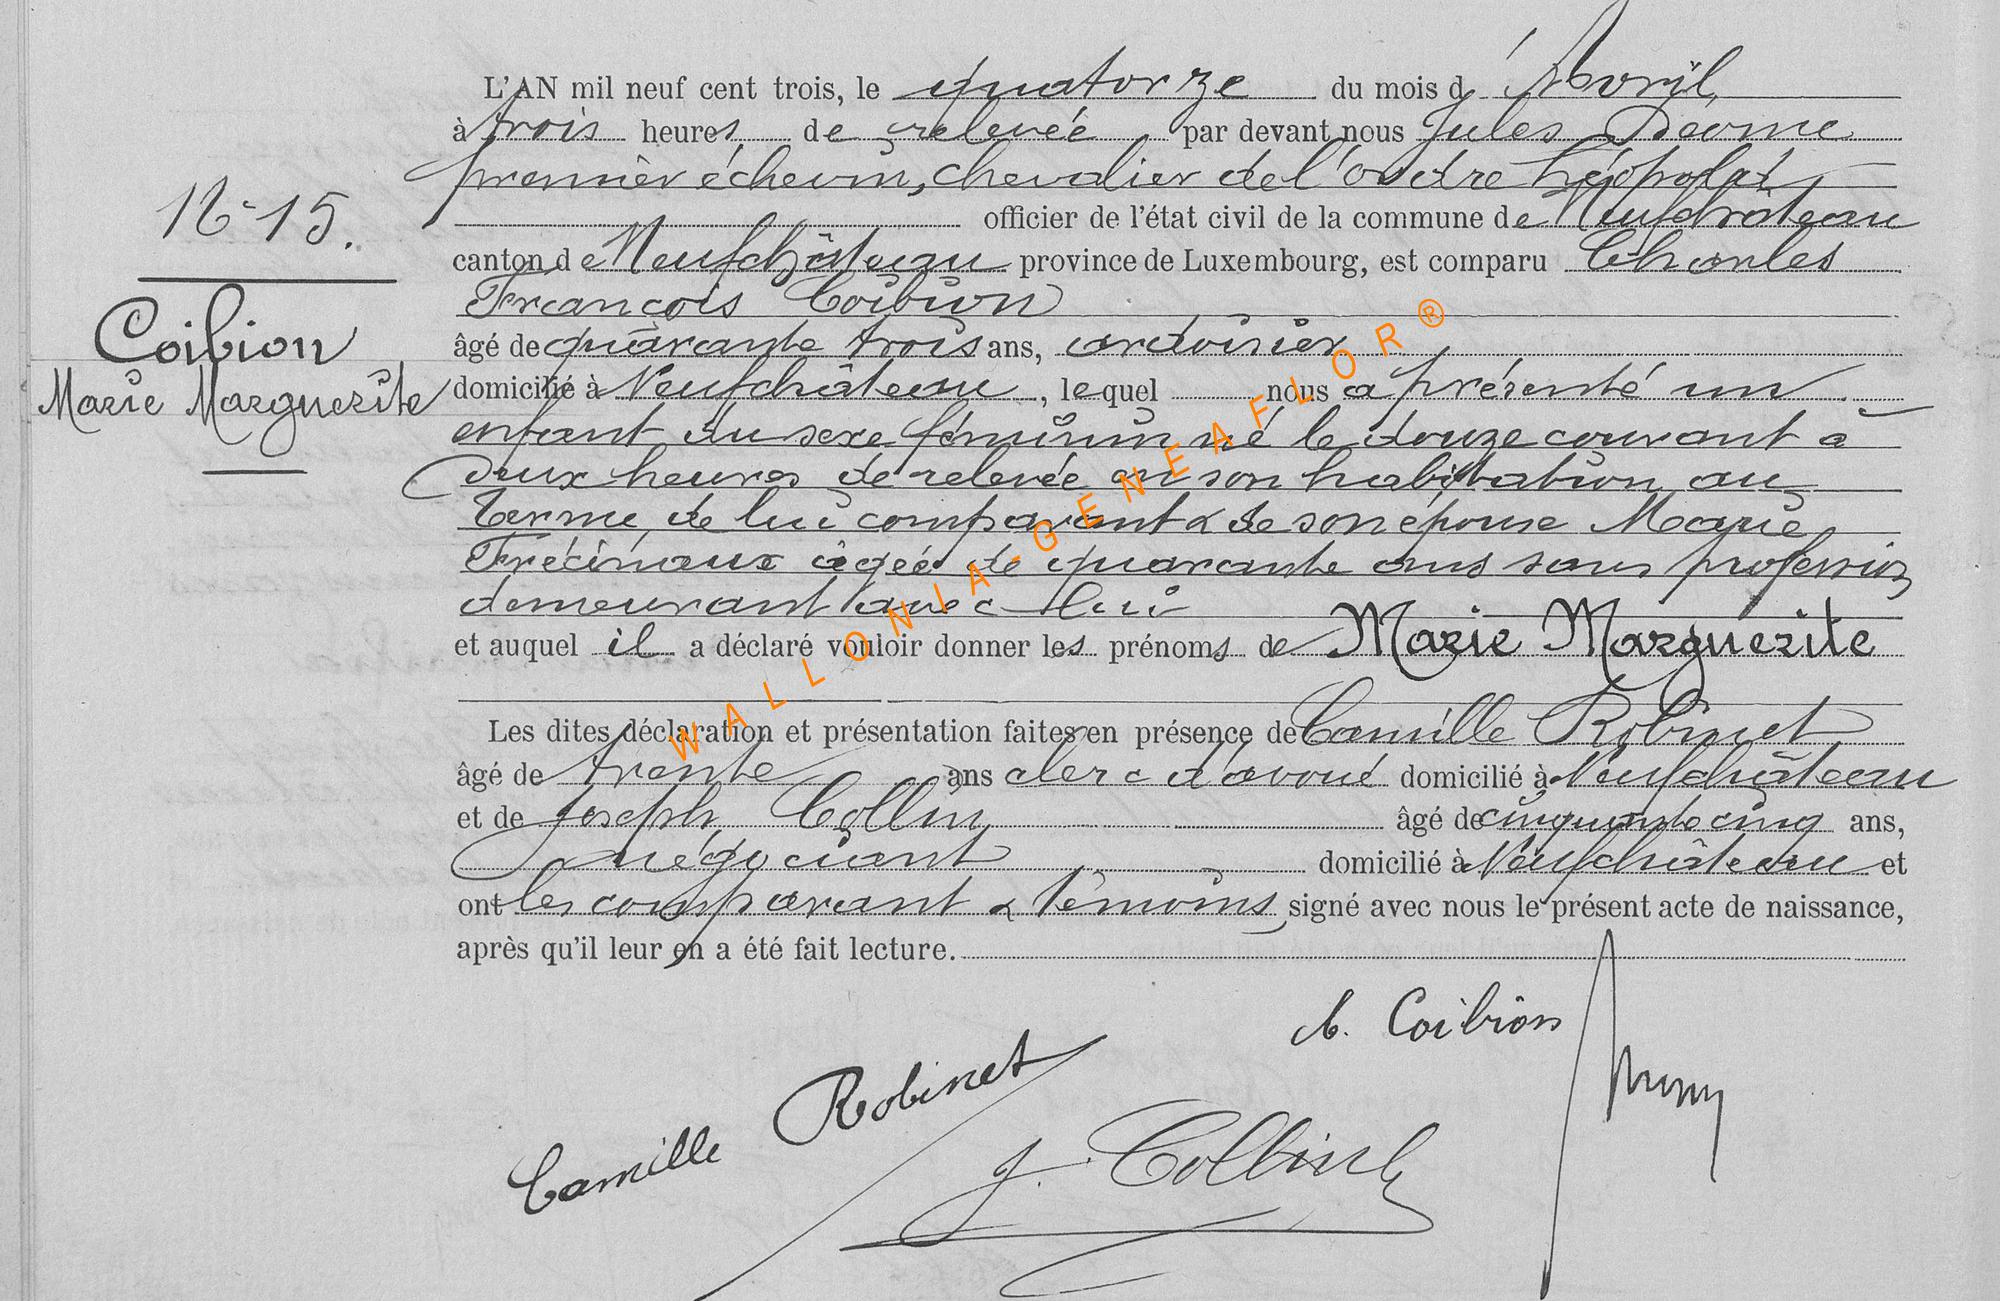 L'AN mil neuf cent trois, le quatorze du mois d'Avril,
à trois heures de relevée par devant nous Jules
premier échevin, chevalier de l'ordre Léopold,
officier de l'état civil de la commune de Neufchâteau
canton de Neufchâteau province de Luxembourg, est comparu Charles
François Coibion
âgé de quarante trois ans, ardoisier
domicilié à Neufchâteau, lequel nous a présenté un
enfant du sexe féminin né le douze courant à
deux heures de relevée en son habitation au
Terme, de lui comparant & de son épouse Marie
Frécinaux agée de quarante ans sans profession
demeurant avec lui
et auquel il a déclaré vouloir donner les prénoms de Marie Marguerite
Les dites déclaration et présentation faites en présence de Camille Robinet
âgé de trente ans clerc d'avoué domicilié à Neufchâteau
et de Joseph Collin âgé de cinquante cinq ans,
négociant domicilié à Neufchâteau et
ont les comparant & témoins signé avec nous le présent acte de naissance,
après qu'il leur en a été fait lecture.
N° 15.
Coibion
Marie Marguerite
C. Coibion
Camille Robinet
J. Collin
WALLONIA-GENEAFLOR®